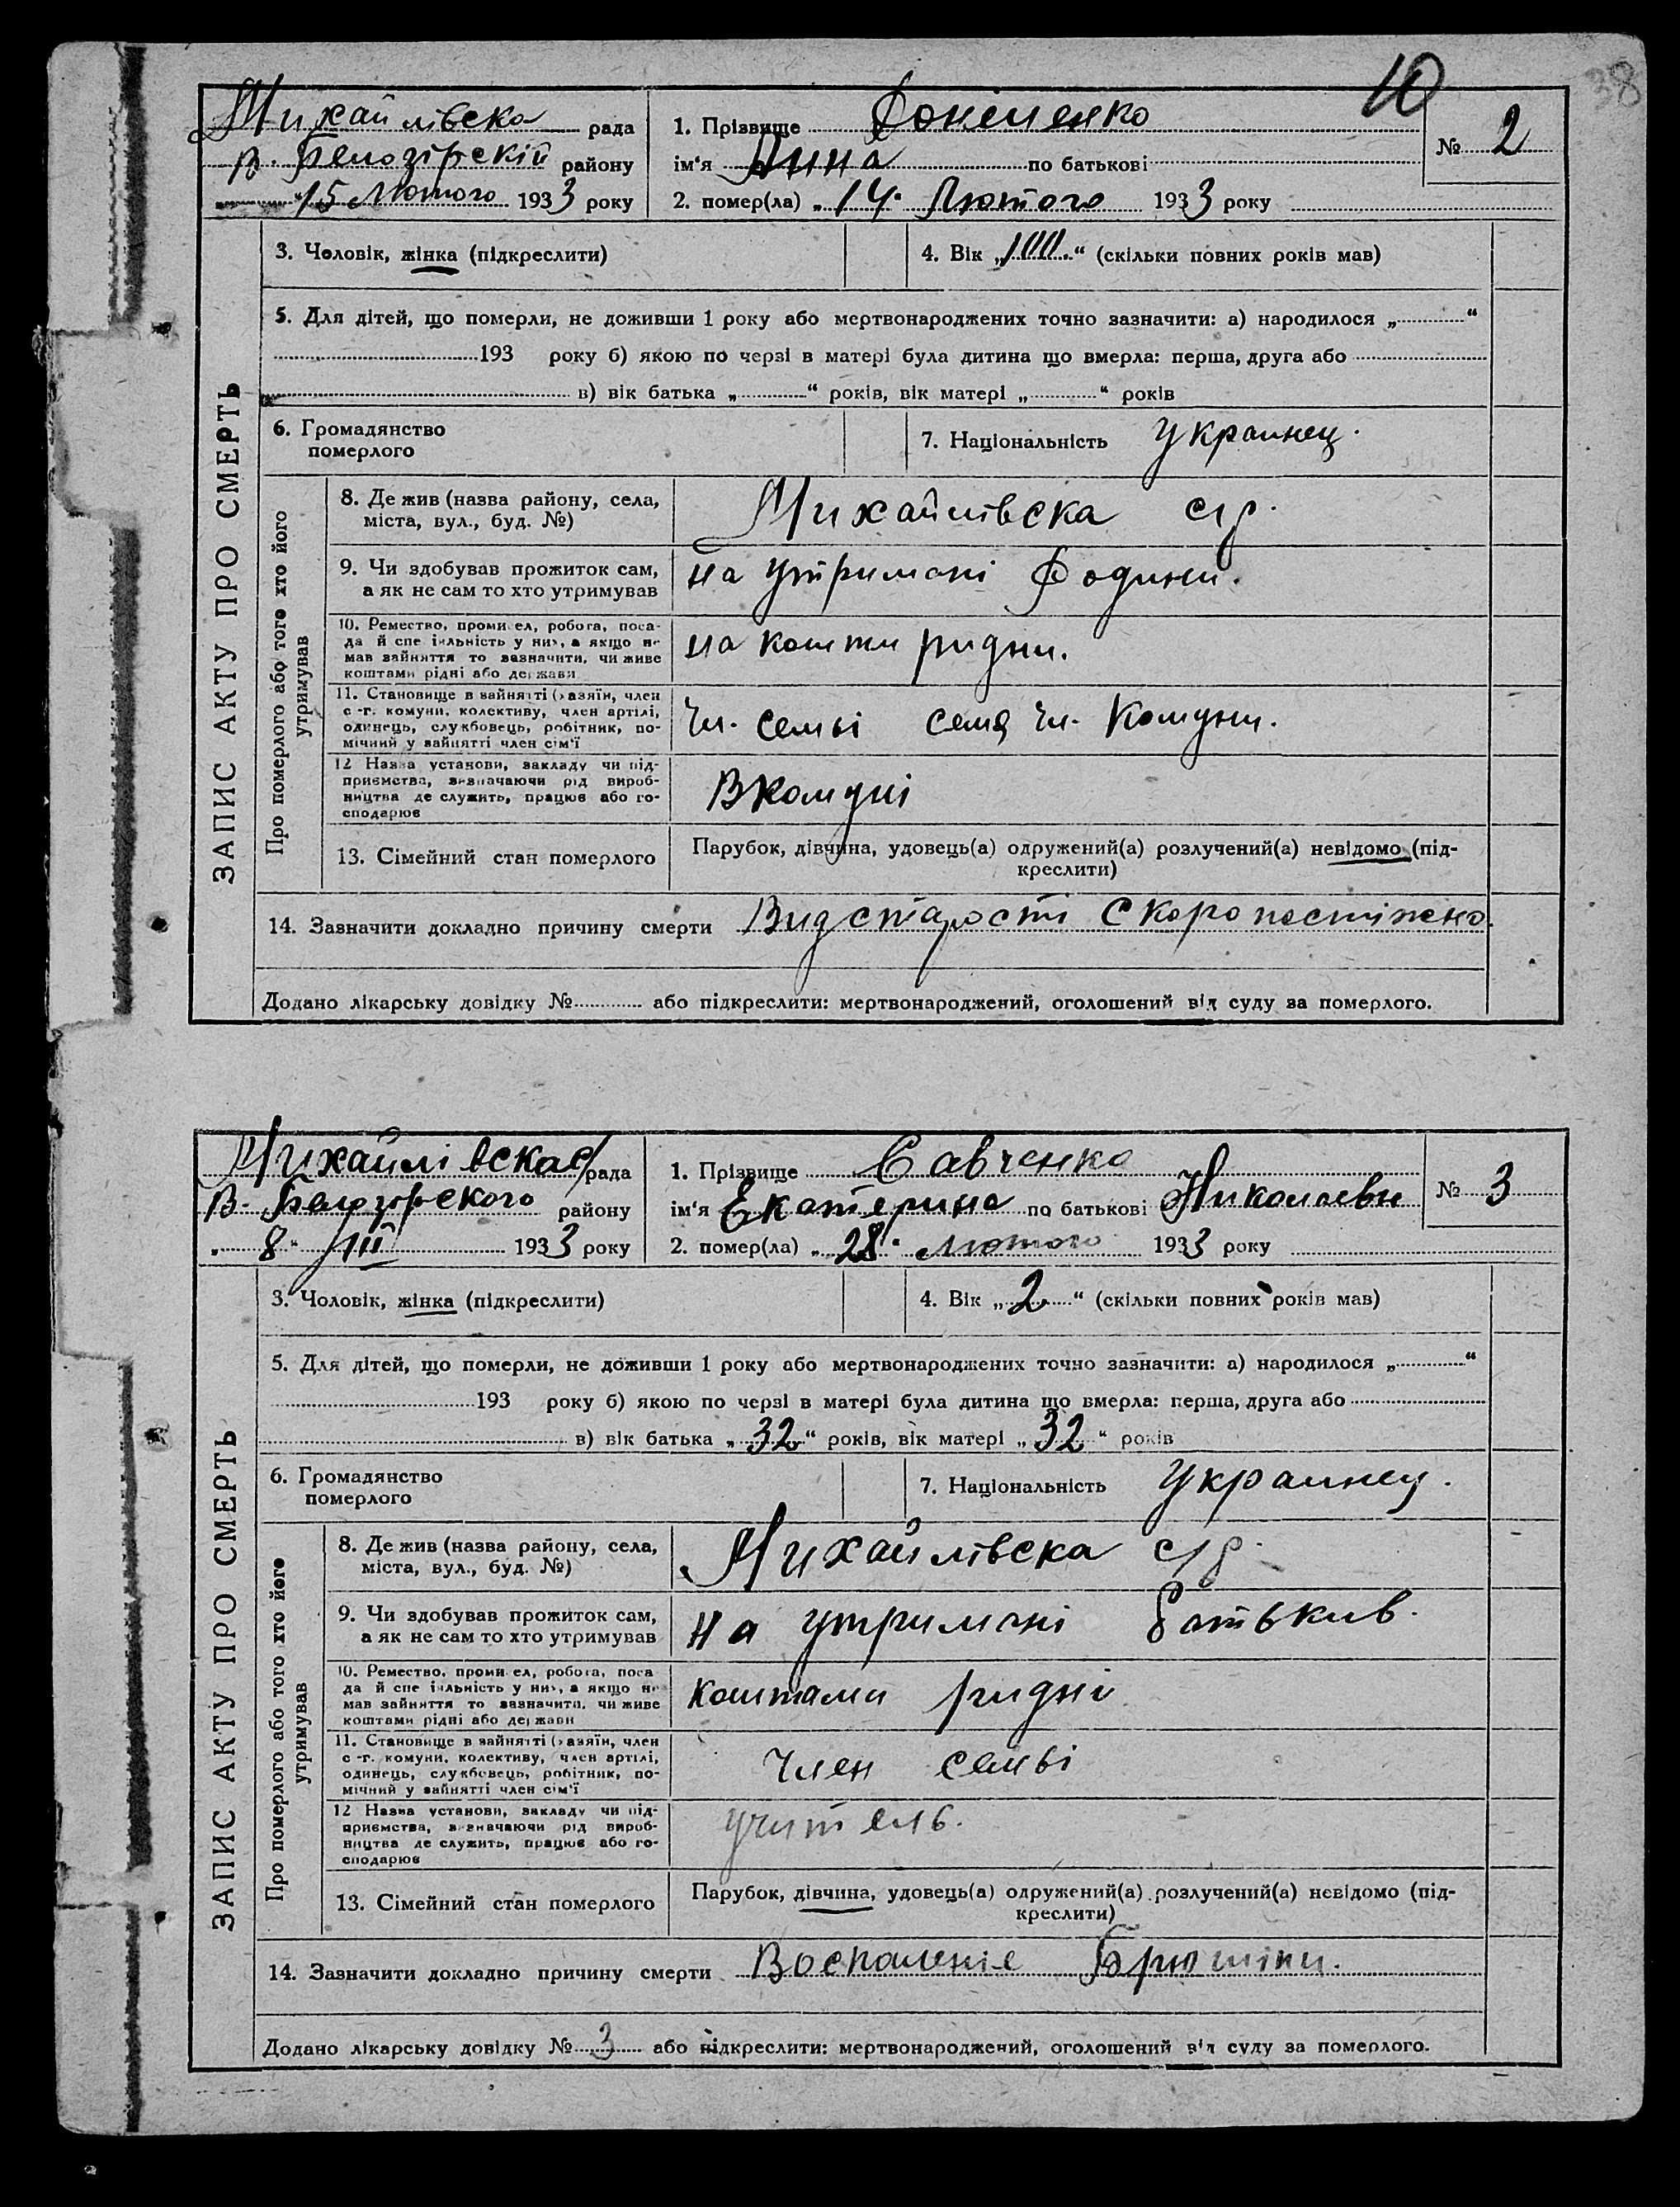 10
38
Михайлівска рада
В. Белозірскій району
"15 Лютого 1933 року
1. Прізвище
ім'я Анна по батькові
2. помер(ла) „14" Лютого 1933 року
№ 2
ЗАПИС АКТУ ПРО СМЕРТЬ
3. Чоловік, жінка (підкреслити)
4. Вік „100" (скільки повних років мав)
5. Для дітей, що померли, не доживши 1 року або мертвонароджених точно зазначити: а) народилося „ "
193 року б) якою по черзі в матері була дитина що вмерла: перша, друга або
в) вік батька „ " років, вік матері „ " років
6. Громадянство
померлого
7. Національність Украинец.
Про померлого або того хто його
утримував
8. Де жив (назва району, села,
міста, вул., буд. №)
Михайлівска с/р.
9. Чи здобував прожиток сам,
а як не сам то хто утримував
на утримані Родини.
10. Ремество, промисел, робота, поса-
да й спеціяльність у них, а якщо не
мав зайняття то зазначити, чи живе
коштами рідні або держави
на кошти ридни.
11. Становище в зайнятті (хазяїн, член
с.-г. комуни, колективу, член артілі,
одинець, службовець, робітник, по-
мічний у зайнятті член сім'ї
Чл. семьі семя чл. Комуни.
12 Назва установи, закладу чи під-
приємства, визначаючи рід вироб-
ництва де служить, працює або го-
сподарює
В комуні
13. Сімейний стан померлого
Парубок, дівчина, удовець(а) одружений(а) розлучений(а) невідомо (під-
креслити)
14. Зазначити докладно причину смерти Вид старости Скоропостіжно.
Додано лікарську довідку № або підкреслити: мертвонароджений, оголошений від суду за померлого.
Михайлівская рада
В. Белозірского району
„8" III 1933 року
1. Прізвище Савченко
ім'я Екатерина по батькові Николаевн
2. помер(ла) „28" лютого 1933 року
№ 3
ЗАПИС АКТУ ПРО СМЕРТЬ
3. Чоловік, жінка (підкреслити)
4. Вік „2" (скільки повних років мав)
5. Для дітей, що померли, не доживши 1 року або мертвонароджених точно зазначити: а) народилося „ "
193 року б) якою по черзі в матері була дитина що вмерла: перша, друга або
в) вік батька „32" років, вік матері „32" років
6. Громадянство
померлого
7. Національність Украинец.
Про померлого або того хто його
утримував
8. Де жив (назва району, села,
міста, вул., буд. №)
Михайлівска с/р.
9. Чи здобував прожиток сам,
а як не сам то хто утримував
на утримані батькив.
10. Ремество, промисел, робота, поса
да й спеціяльність у них, а якщо не
мав зайняття то зазначити, чи живе
коштами рідні або держави
коштами ридні
11. Становище в зайнятті (хазяїн, член
с.-г. комуни, колективу, член артілі,
одинець, службовець, робітник, по-
мічний у зайнятті член сім'ї
член семьі
12 Назва установи, закладу чи під-
приємства, визначаючи рід вироб-
ництва де служить, працює або го-
сподарює
учитель.
13. Сімейний стан померлого
Парубок, дівчина, удовець(а) одружений(а) розлучений(а) невідомо (під-
креслити)
14. Зазначити докладно причину смерти Воспаленіе Брюшіни.
Додано лікарську довідку № 3 або підкреслити: мертвонароджений, оголошений від суду за померлого.